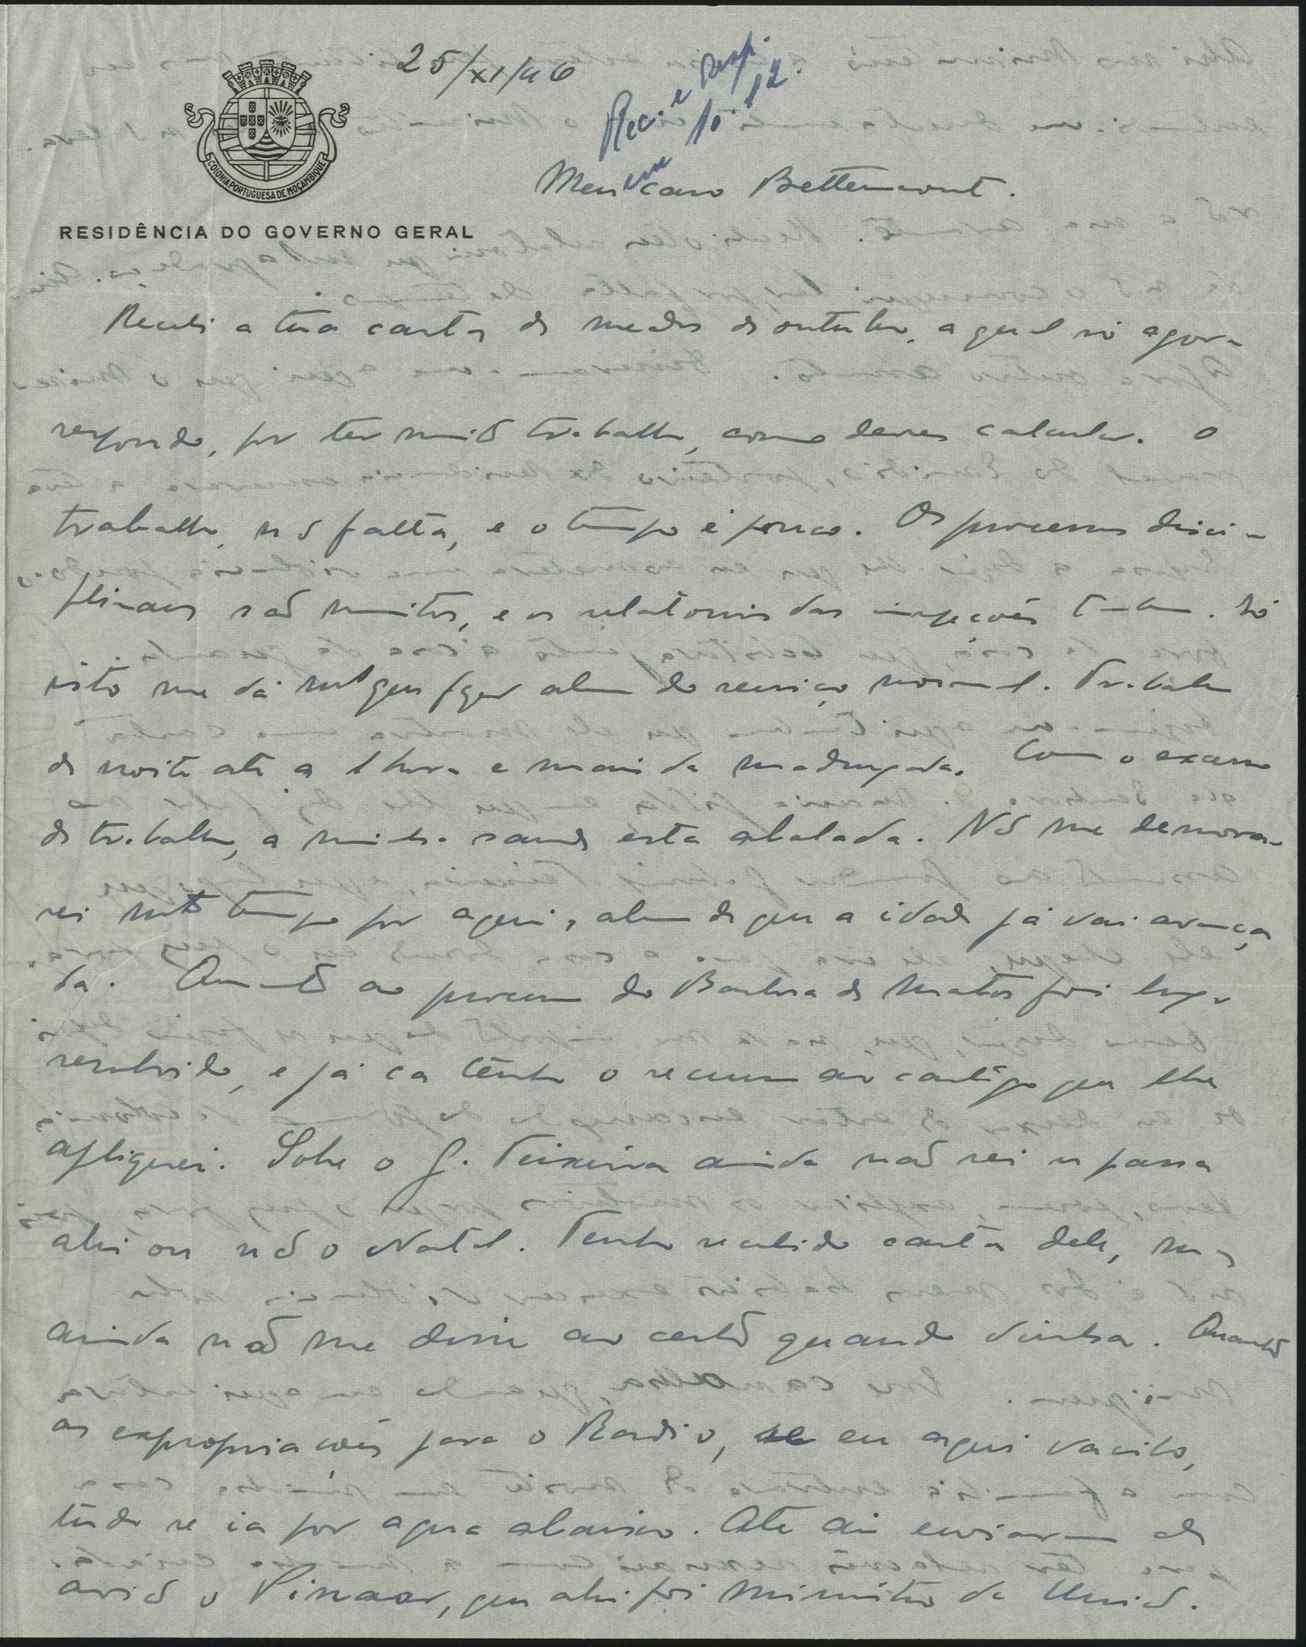 25/XI/46
Rec. e Resp.
em 10-12.
COLONIA PORTUGUESA DE MOÇAMBIQUE
RESIDÊNCIA DO GOVERNO GERAL
Meu caro Bettencourt.
Recebi a tua carta de meados de outubro, a qual só agora
respondo, por ter muito trabalho, como deves calcular. O
trabalho não falta, e o tempo é pouco. Os processos disci-
plinares são muitos, e os relatorios das inspeções tambem. Só
isto me dá mto que fazer alem do serviço normal. Trabalho
de noite até a 1 hora e mais da madrugada. Com o excesso
de trabalho, a minha saude está abalada. Não me demora-
rei mto tempo por aqui, alem de que a idade já vai avança
da. Quanto ao processo do Barbosa de Matos foi logo
resolvido, e já cá tenho o recurso ao castigo que lhe
apliquei. Sobre o G. Teixeira ainda não sei se passa
ahi ou não o Natal. Tenho recebido carta dele, mas
ainda não me disse ao certo quando vinha. Quanto
as expropriações para o Radio, se eu aqui vacilo,
tudo se ia por agua abaixo. Até ai enviaram de
avião o Pinaar, que ahi foi Ministro da União.